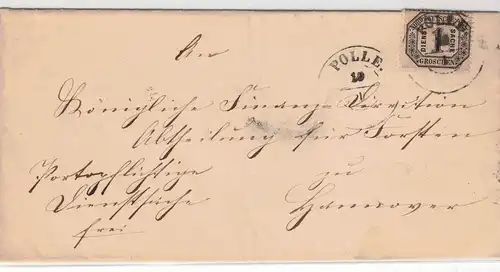 An
POLLE.
19
DIENST
SACHE
1
GROSCHEN
Königliche Finanz-Direction
Abtheilung für Forsten
Portopflichtige
zu
Dienstsache
Hannover
frei